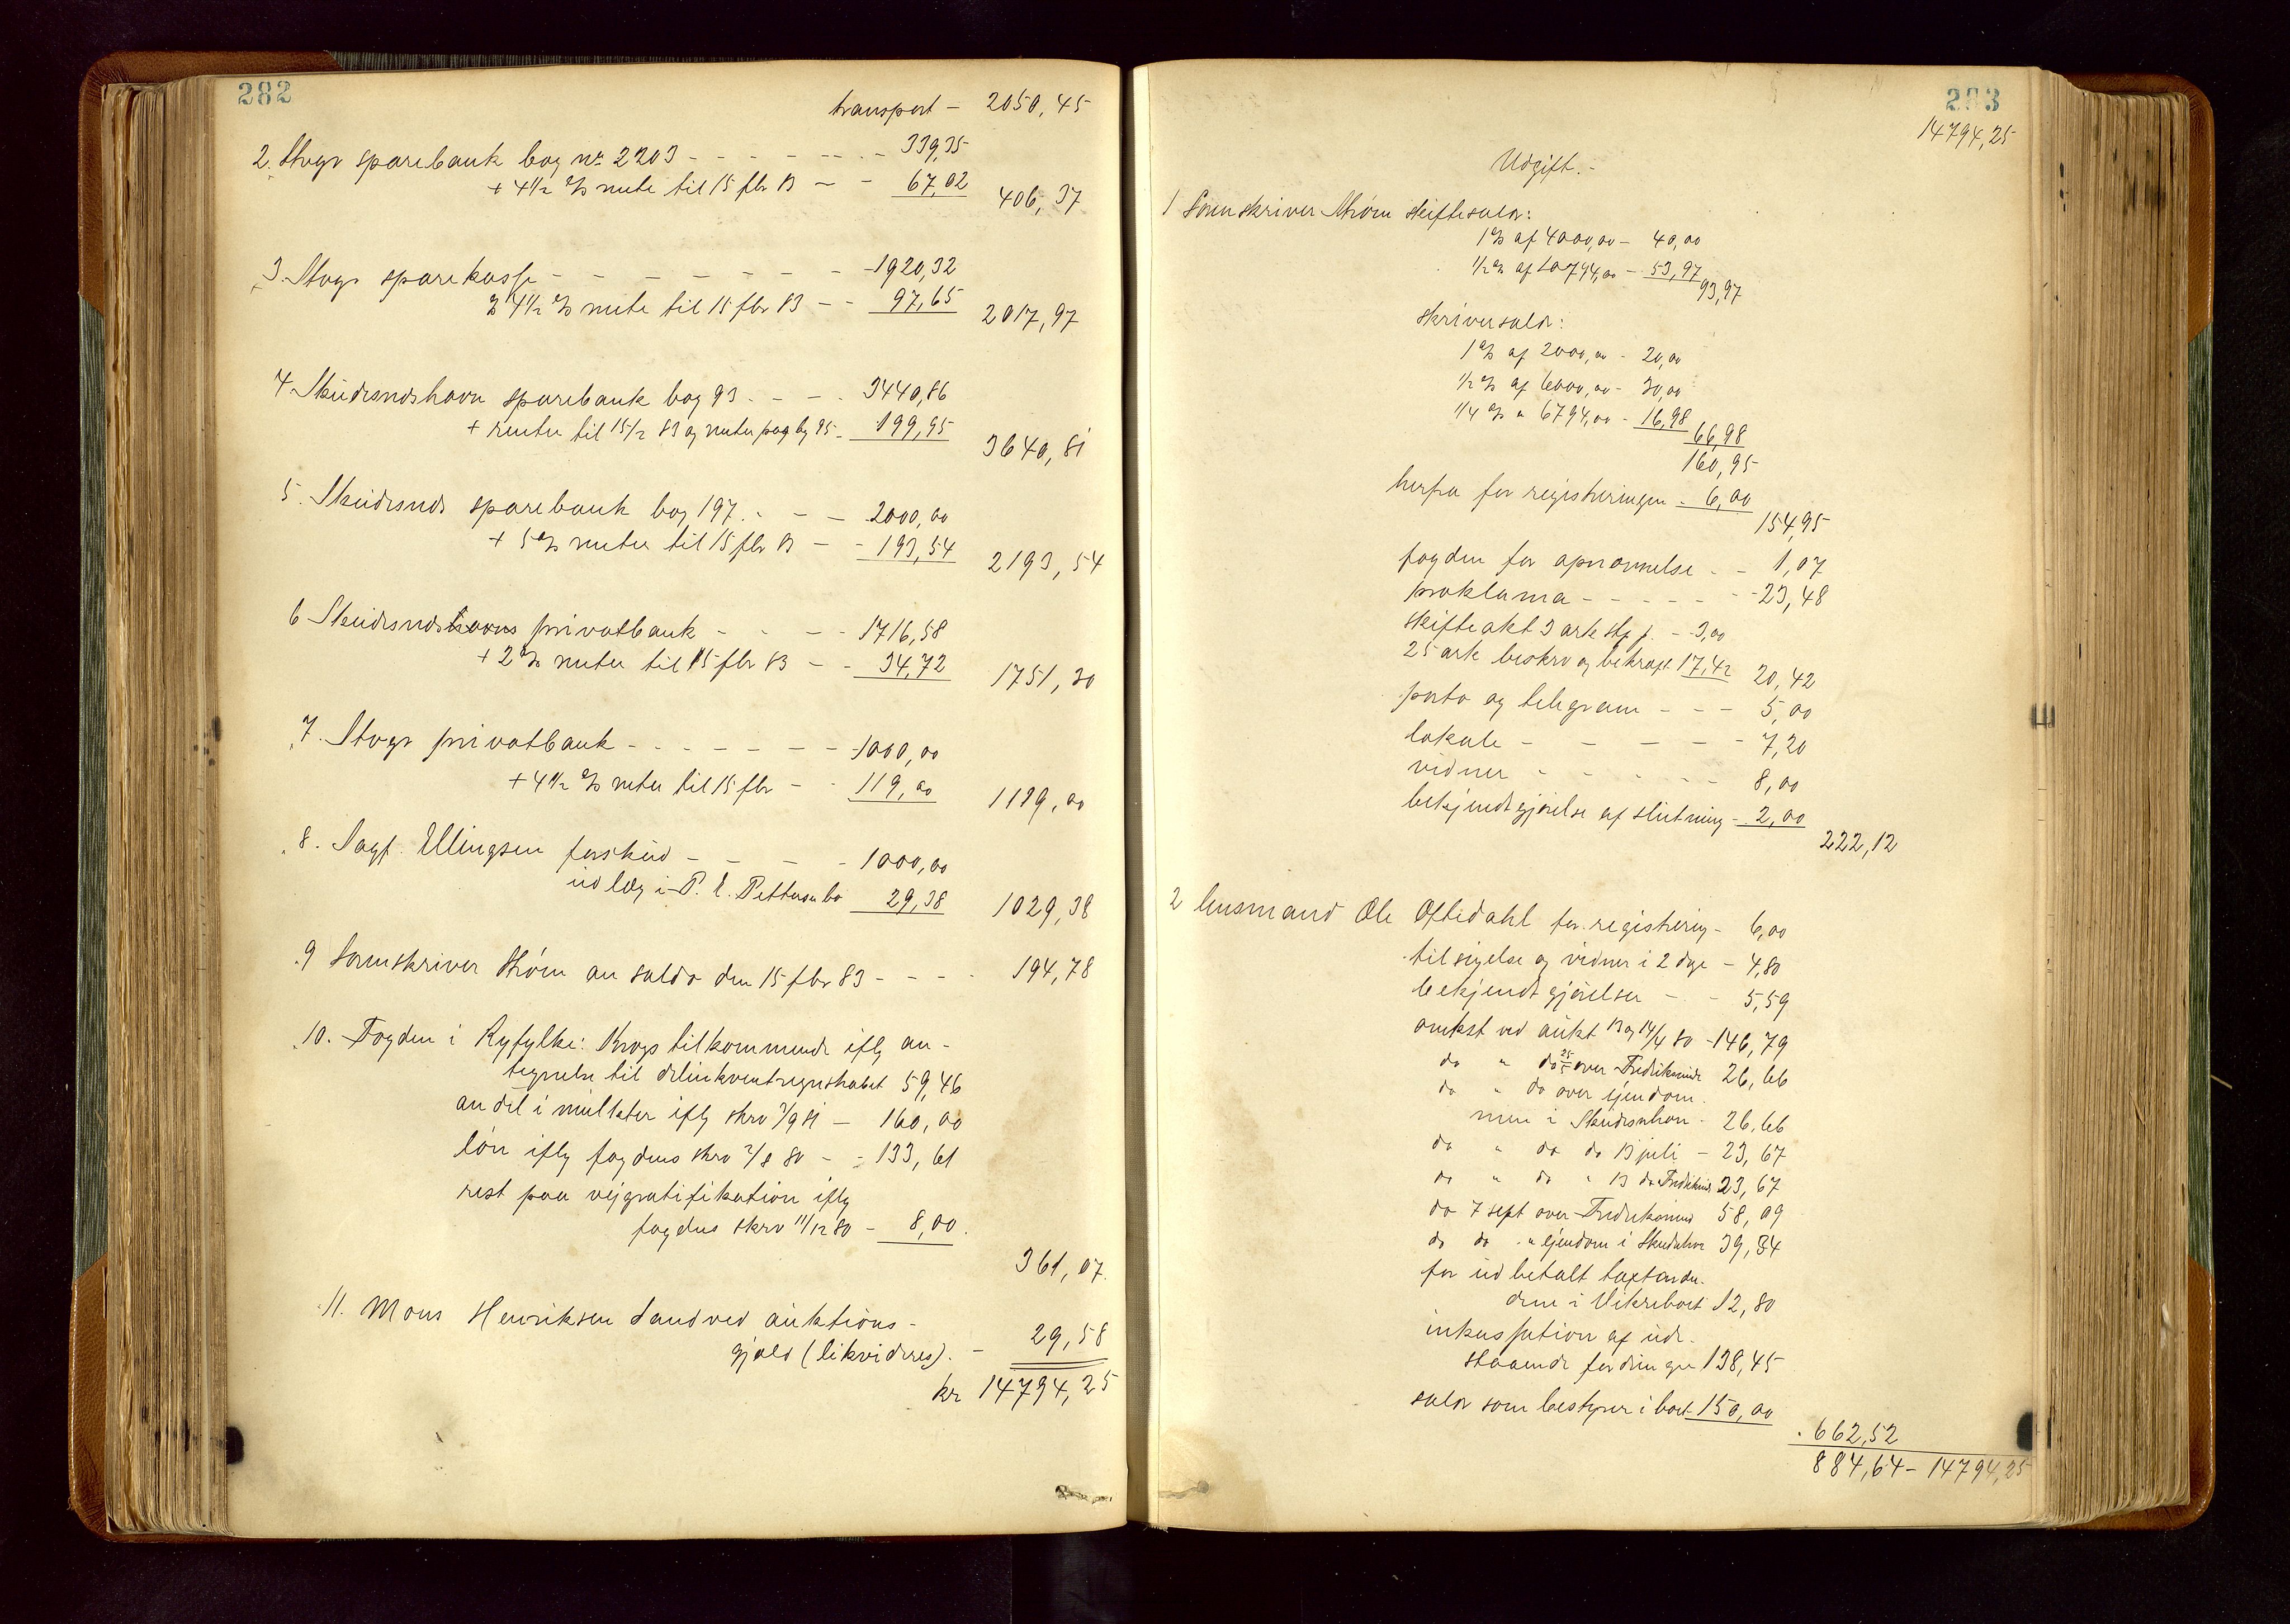 282
transport – 2050,45
2. Stvgr sparebank bog nº 2203 - - - - - - - 339,35
+ 4 1/2 % rente til 15 fbr 83 - - 67,02 406,37
3. Stvgr sparekasse - - - - - - - 1920,32
4 1/2 % rente til 15 fbr 83 - - 97,65 2017,97
4 Skudesneshavn sparebank bog 93 - - - 3440,86
+ renter til 15/2 83 og renter paa bg 95 - 199,95 3640,81
5. Skudesnes sparebank bog 197 - - - 2000,00
+ 5 % renter til 15 fbr 83 - - 193,54 2193,54
6 Skudesneshavns privatbank - - - - 1716,58
+ 2 % renter til 15 fbr 83 - - 34,72 1751,30
7. Stvgr privatbank - - - - - - - 1000,00
+ 4 1/2 % renter til 15 fbr - - 119,00 1119,00
8. Sagf. Ellingsen forskud - - - - 1000,00
udlæg i P. E. Pettersen bo 29,38 1029,38
9 Sorenskriver Strøm an saldo den 15 fbr 83 - - - - 194,78
10. Fogden i Ryfylke: Krogs tilkommende iflg an-
tegnelse til delinkventregnskabet 59,46
andel i mulkter iflg skrv 7/9 81 – 160,00
løn iflg fogdens skrv 2/8 80 - - 133,61
rest paa vejgratifikation iflg
fogdens skrv 11/12 80 – 8,00
361,07
11. Mons Henriksen Sandved auktions-
gjæld (likvideres). – 29,58
kr 14794,25
283
14794,25
Udgift.-
1 Sorenskriver Strøm skiftesalær:
1 % af 4000,00 – 40,00
1/2 % af 10794,00 – 53,97 93,97
skriversalær:
1 % af 2000,00 - 20,00
1/2 % af 6000,00 - 30,00
1/4 % " 6794,00 - 16,98 66,98
160,95
herfra for registreringen - 6,00
154,95
fogden for opnævnelse - - 1,07
proklama - - - - - - 23,48
skifteakt 3 ark stp p. - 3,00
25 ark beskrv og bekræft 17,42 20,42
porto og telegram - - - 5,00
lokale - - - - - 7,20
vidner - - - - - 8,00
bekjendtgjørelse af slutning - 2,00
222,12
2 lensmand Ole Oftedahl for registrering - 6,00
tilsigelse og vidner i 2 dage – 4,80
bekjendtgjørelser - - - 5,59
omkst ved aukt 13 og 14/4 80 - 146,79
do " do 25/5 over Fredriksminde 26,66
do " do over ejendom.
men i Skudesnhavn - 26,66
do " do do 13 juli – 23,67
do " do " 13 do Fredriksmi 23,67
do 7 sept over Fredriksmind 58,09
do do " ejendom i Skudeshav 39,34
for udbetalt taxtonde.
drne i Vikreboet 12,80
inkassation af ude-
staaende fordringer 138,45
salær som bestyrer i boet 150,00
662,52
884,64 – 14794,25